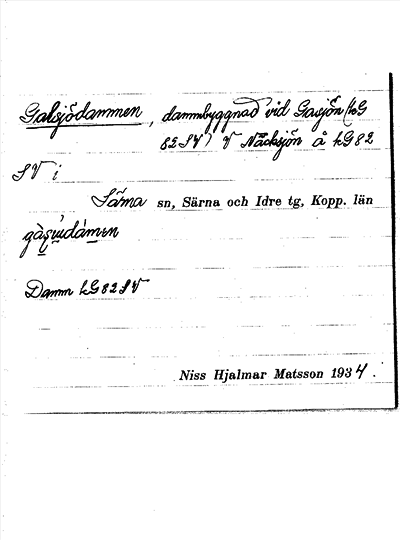 Galsjödammen, dammbyggnad vid Gasjön (kG
82SV) V Näcksjön å kG82
SV i
Särna sn, Särna och Idre tg, Kopp. län
Damm kG82SV
Niss Hjalmar Matsson 1934.